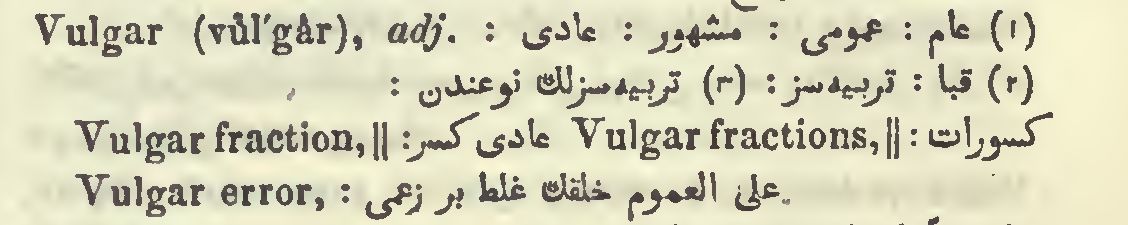 Vulgar (vŭl′gȧr), adj. : (۱) عام : عمومی : مشهور : عادی :
(۲) قبا : تربیه‌سز : (۳) تربیه‌سزلك نوعندن :
Vulgar fraction,‖ عادی كسر: Vulgar fractions,‖ كسورات :
Vulgar error, علی العموم خلقك غلط بر زعمی :